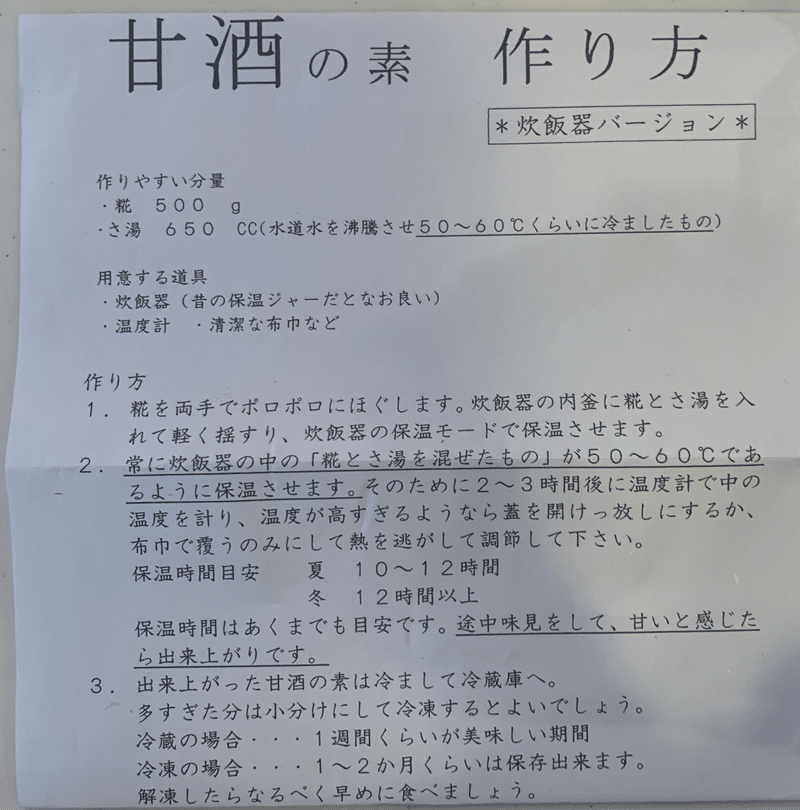 甘酒の素　作り方
＊炊飯器バージョン＊
作りやすい分量
・糀　５００　ｇ
・さ湯　６５０　CC(水道水を沸騰させ５０～６０℃くらいに冷ましたもの)
用意する道具
・炊飯器（昔の保温ジャーだとなお良い）
・温度計　・清潔な布巾など
作り方
１．糀を両手でポロポロにほぐします。炊飯器の内釜に糀とさ湯を入
れて軽く揺すり、炊飯器の保温モードで保温させます。
２．常に炊飯器の中の「糀とさ湯を混ぜたもの」が５０～６０℃であ
るように保温させます。そのために２～３時間後に温度計で中の
温度を計り、温度が高すぎるようなら蓋を開けっ放しにするか、
布巾で覆うのみにして熱を逃がして調節して下さい。
保温時間目安　　夏　１０～１２時間
冬　１２時間以上
保温時間はあくまでも目安です。途中味見をして、甘いと感じた
ら出来上がりです。
３．出来上がった甘酒の素は冷まして冷蔵庫へ。
多すぎた分は小分けにして冷凍するとよいでしょう。
冷蔵の場合・・・１週間くらいが美味しい期間
冷凍の場合・・・１～２か月くらいは保存出来ます。
解凍したらなるべく早めに食べましょう。